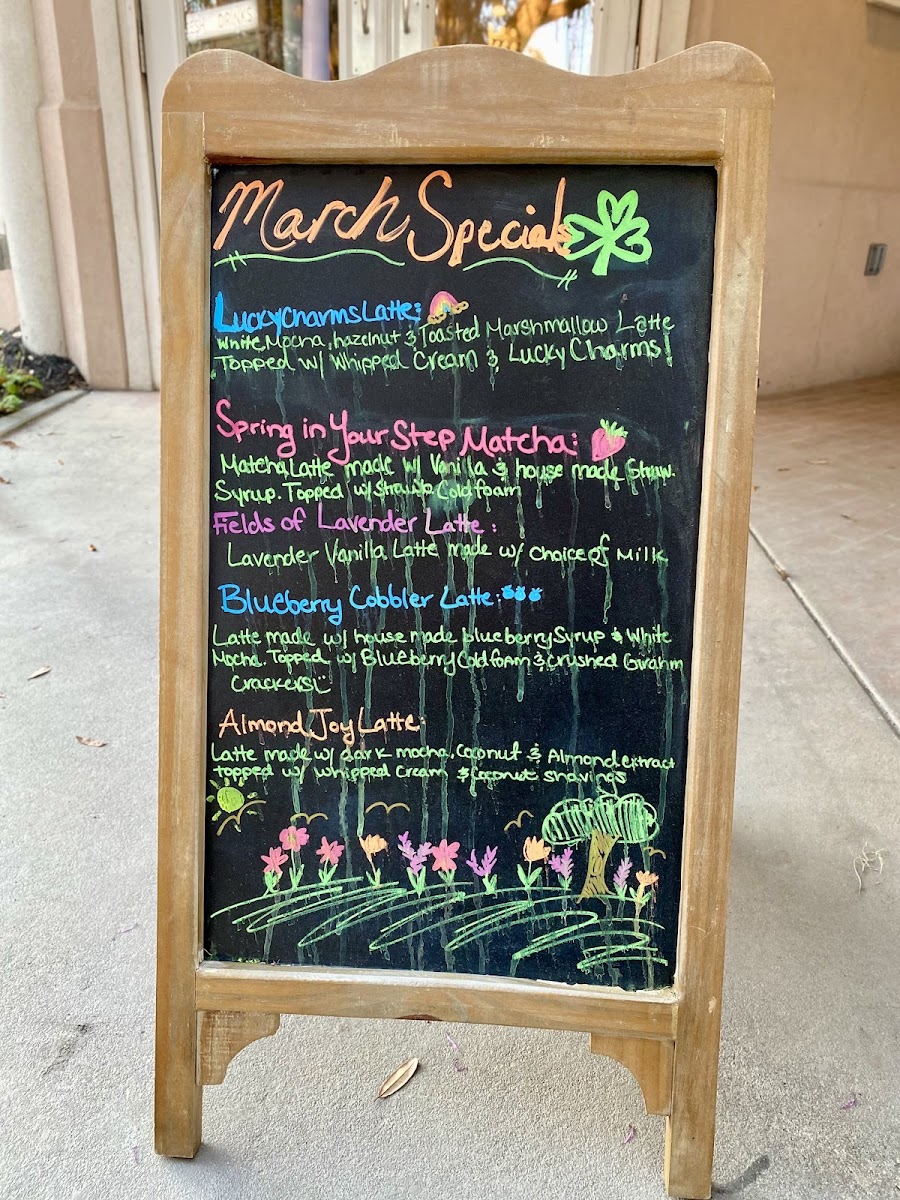 DRINKS
March Specials
LuckyCharms Latte:
White Mocha, hazelnut & Toasted Marshmallow Latte
Topped w/ Whipped Cream & Lucky Charms!
Spring in Your Step Matcha:
Matcha Latte made w/ Vanilla & house made Straw.
Syrup. Topped w/ Straw. Cold foam
Fields of Lavender Latte:
Lavender Vanilla Latte made w/ choice of Milk
Blueberry Cobbler Latte:
Latte made w/ house made blueberry Syrup & White
Mocha. Topped w/ Blueberry Cold foam & crushed Grahm
Crackers!
Almond Joy Latte:
Latte made w/ dark mocha, Coconut & Almond extract
topped w/ whipped Cream & Coconut shavings